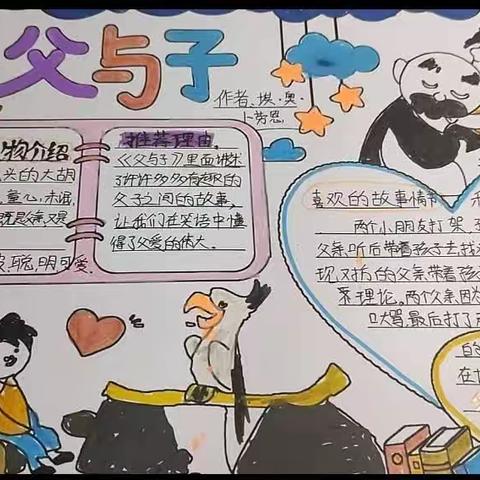 父与子
作者、埃·奥·
卜劳恩
物介绍
头的大胡
童心,未泯
既是父亲,又是
聪,明,可爱。
推荐理由
《父与子》里面描术
了许许多多有趣的
父子之间的故事,
让我们在笑话中懂
得了父爱的伟大。
喜欢的故事情节
两个小朋友打架,
父亲,听后带着孩子去找
现,对方的父亲带着孩
来理论,两个父亲因
口大骂,最后打了